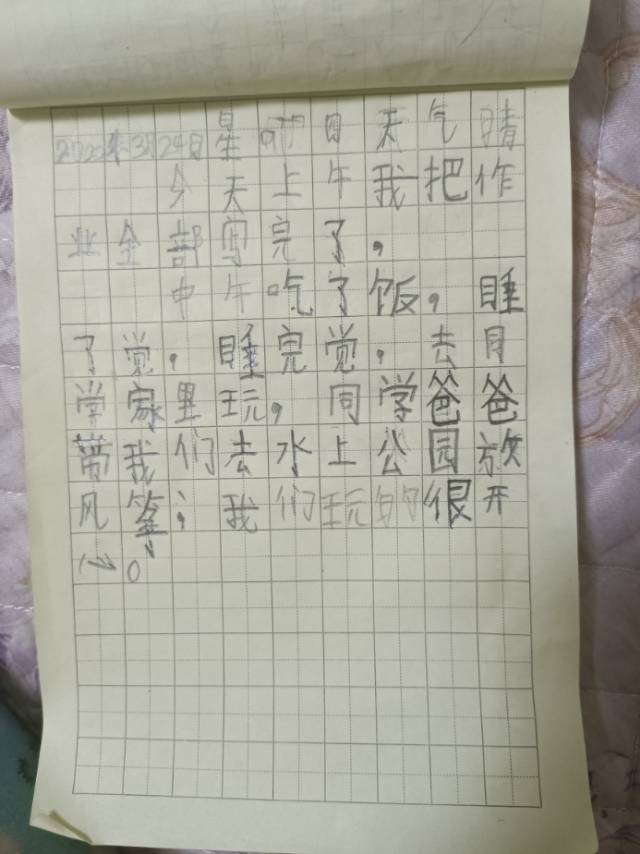 星期日天气晴
今天上午我把作
业全部写完了，
中午吃了饭，睡
了觉，睡完觉，去月
学家里玩，同学爸爸
带我们去水上公园放
风筝；我们玩的很开
心。